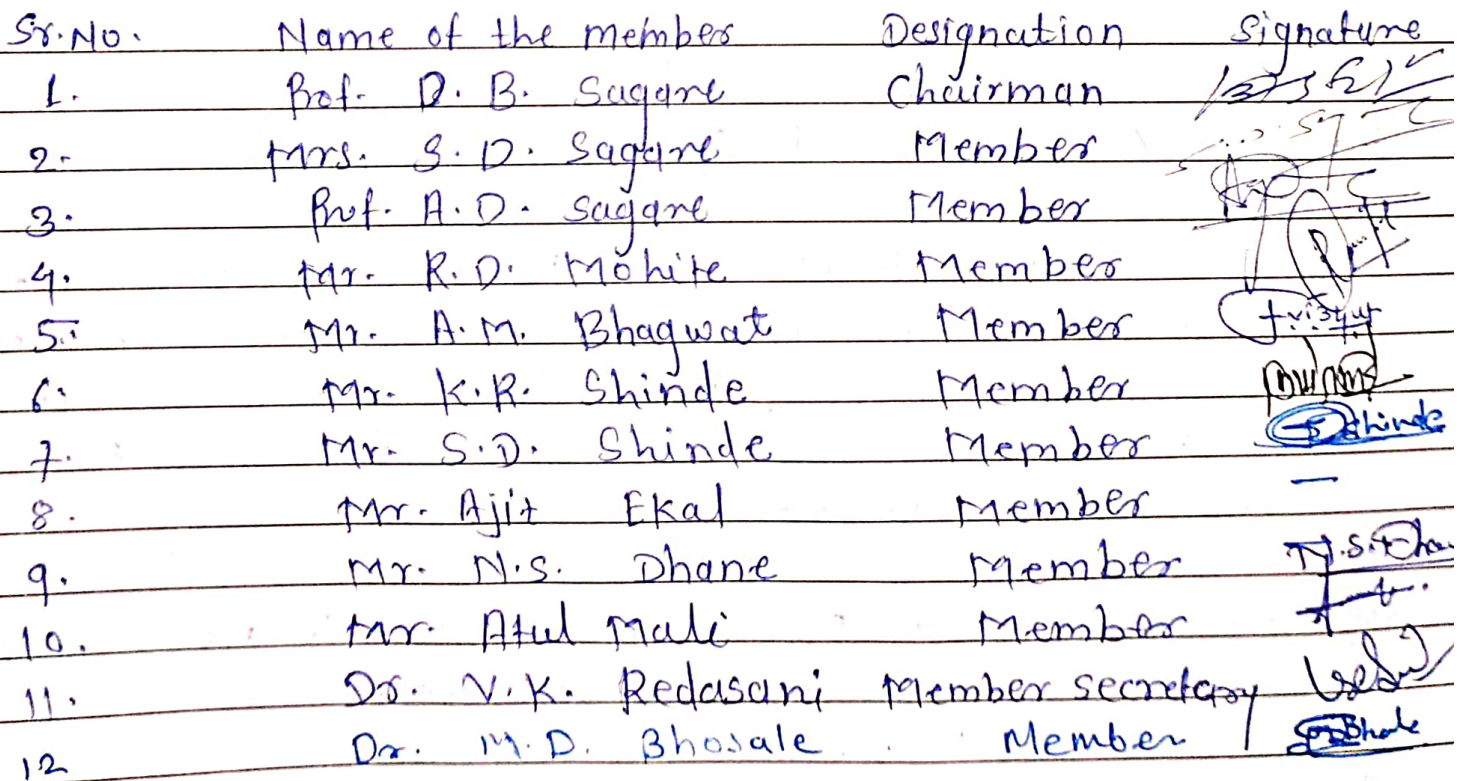 Sr. No. Name of the member Designation Signature
1. Prof. D. B. Sagare Chairman
2. Mrs. S. D. Sagare Member
3. Prof. A. D. Sagare Member
4. Mr. R. D. Mohite Member
5. Mr. A. M. Bhagwat Member
6. Mr. K. R. Shinde Member
7. Mr. S. D. Shinde Member Shinde
8. Mr. Ajit Ekal Member —
9. Mr. N. S. Dhane Member N.S.
10. Mr. Atul Mali Member
11. Dr. V. K. Redasani Member secretary
12 Dr. M. D. Bhosale Member